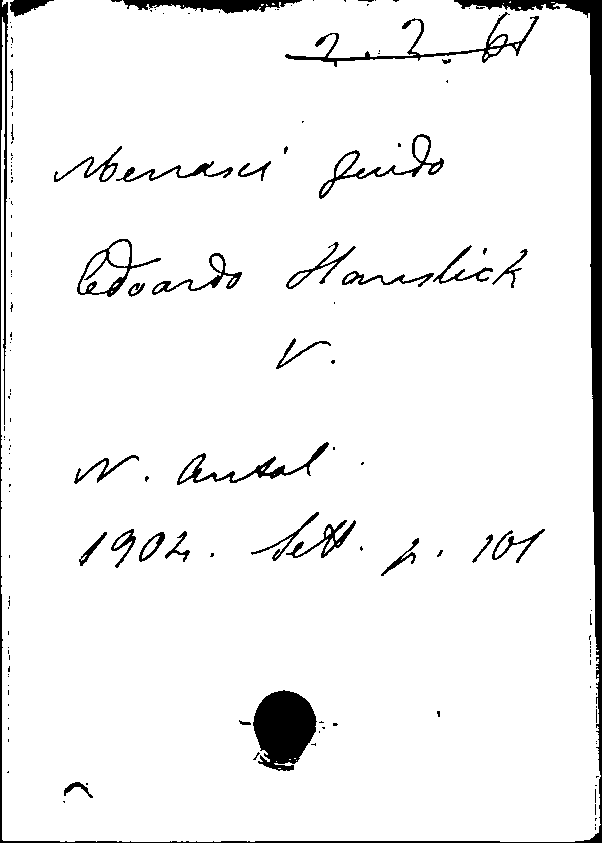 2.2.61
Menasci Guido
Edoardo Hanslick
V.
N. Antol.
1904. Sett. p. 101